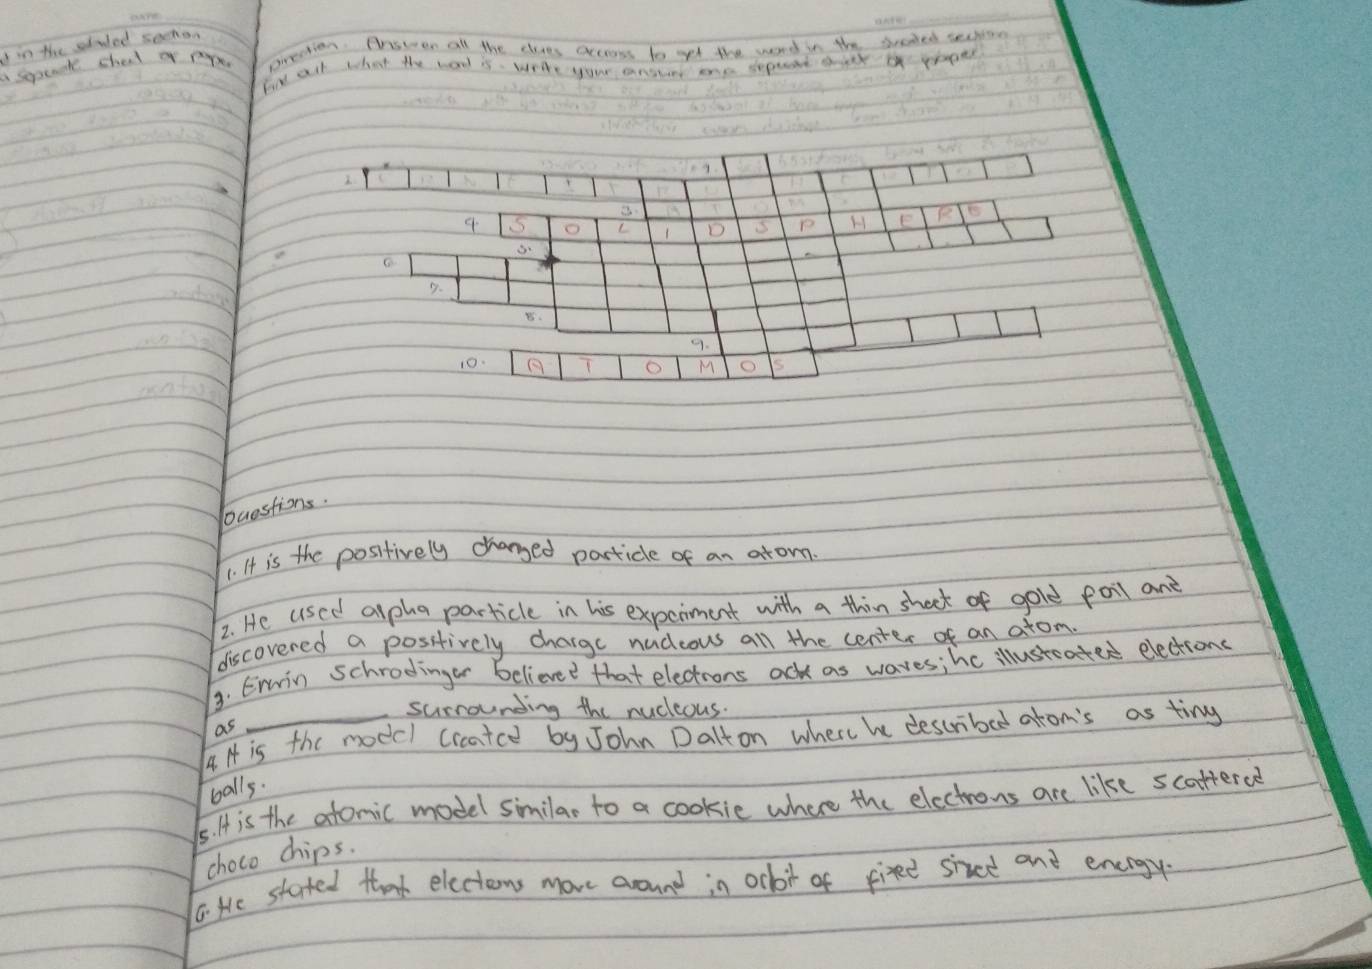 DATE
DATE
d in the shaded section
a separate sheet of paper
Direction. Answer all the clues accross to get the word in the shaded section
find out what the word is. Write your answer on a separate sheet of paper
1.
2.
3.
4. S O L I D S P H E R E
5.
6.
7.
8.
9.
10. A T O M O S
Questions.
1. It is the positively charged particle of an atom.
2. He used alpha particle in his experiment with a thin sheet of gold foil and
discovered a positively charge nucleous all the center of an atom.
3. Erwin Schrodinger believed that electrons ack as waves; he illustrated electrons
as __________ surrounding the nucleous.
4. It is the model created by John Dalton where he described atom's as tiny
balls.
5. It is the atomic model similar to a cookie where the electrons are like scattered
choco chips.
6. He stated that electrons move around in orbit of fixed sized and energy.